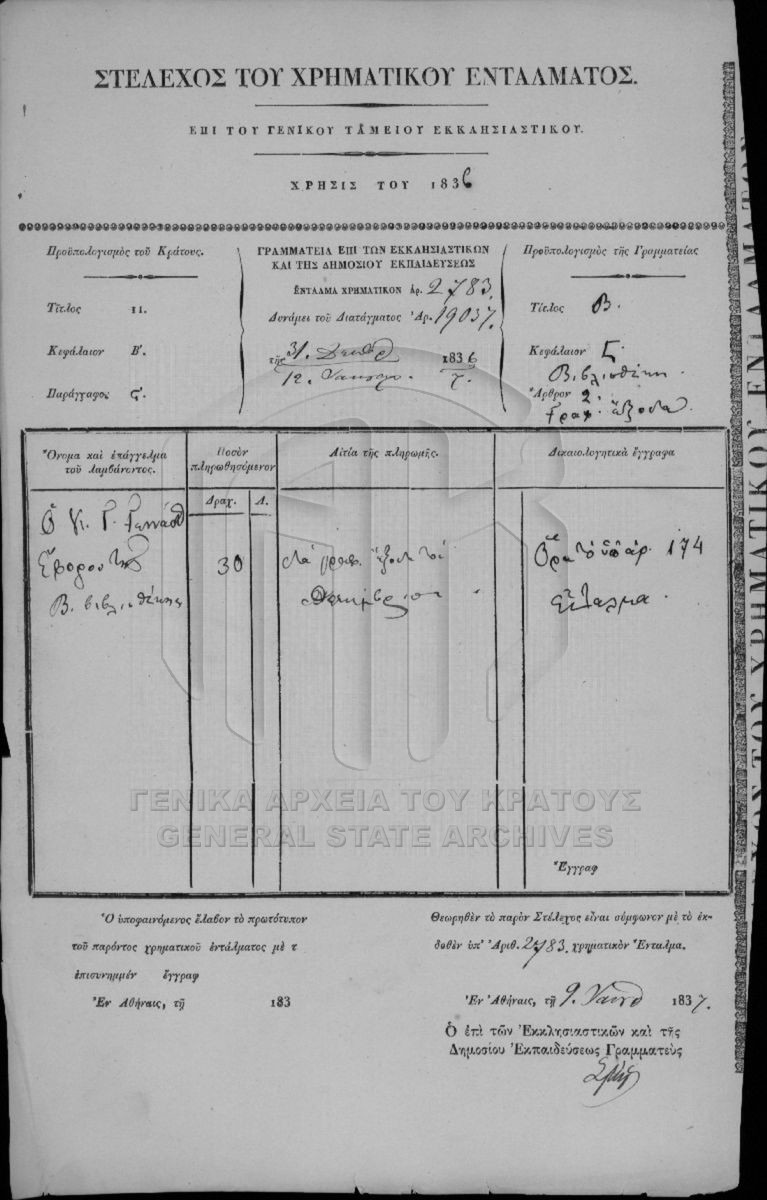 ΣΤΕΛΕΧΟΣ ΤΟΥ ΧΡΗΜΑΤΙΚΟΥ ΕΝΤΑΛΜΑΤΟΣ.
ΕΠΙ ΤΟΥ ΓΕΝΙΚΟΥ ΤΑΜΕΙΟΥ ΕΚΚΛΗΣΙΑΣΤΙΚΟΥ.
ΧΡΗΣΙΣ ΤΟΥ 1836
Προϋπολογισμὸς τοῦ Κράτους.
Τίτλος 11.
Κεφάλαιον Β'.
Παράγραφος ς'.
ΓΡΑΜΜΑΤΕΙΑ ΕΠΙ ΤΩΝ ΕΚΚΛΗΣΙΑΣΤΙΚΩΝ
ΚΑΙ ΤΗΣ ΔΗΜΟΣΙΟΥ ΕΚΠΑΙΔΕΥΣΕΩΣ
ΕΝΤΑΛΜΑ ΧΡΗΜΑΤΙΚΟΝ Ἀρ. 2783.
Δυνάμει τοῦ Διατάγματος Ἀρ. 19037.
τῆς 31. 1836
12. 7.
Προϋπολογισμὸς τῆς Γραμματείας
Τίτλος Β.
Κεφάλαιον
Βιβλιοθήκη.
Ἄρθρον 2.
Γραφ. ἔξοδα.
Ὄνομα καὶ ἐπάγγελμα
τοῦ λαμβάνοντος.
Ποσὸν
πληρωθησόμενον
Δραχ. Λ.
Αἰτία τῆς πληρωμῆς.
Δικαιολογητικὰ ἔγγραφα
Ὁ Κ. Γ.
Ἔφορος τῆς
Β. βιβλιοθήκης
30
γραφ. ἔξοδα τοῦ
Δεκεμβρίου
Ὅρα τὸ ὑπ' ἀρ. 174
ἔνταλμα.
Ἔγγραφ
Ὁ ὑποφαινόμενος ἔλαβον τὸ πρωτότυπον
τοῦ παρόντος χρηματικοῦ ἐντάλματος μὲ τ
ἐπισυνημμέν ἔγγραφ
Ἐν Ἀθήναις, τῇ 183
Θεωρηθὲν τὸ παρὸν Στέλεχος εἶναι σύμφωνον μὲ τὸ ἐκ-
δοθὲν ὑπ' Ἀριθ. 2783. χρηματικὸν Ἔνταλμα.
Ἐν Ἀθήναις, τῇ 9. 1837.
Ὁ ἐπὶ τῶν Ἐκκλησιαστικῶν καὶ τῆς
Δημοσίου Ἐκπαιδεύσεως Γραμματεὺς
ΓΕΝΙΚΑ ΑΡΧΕΙΑ ΤΟΥ ΚΡΑΤΟΥΣ
GENERAL STATE ARCHIVES